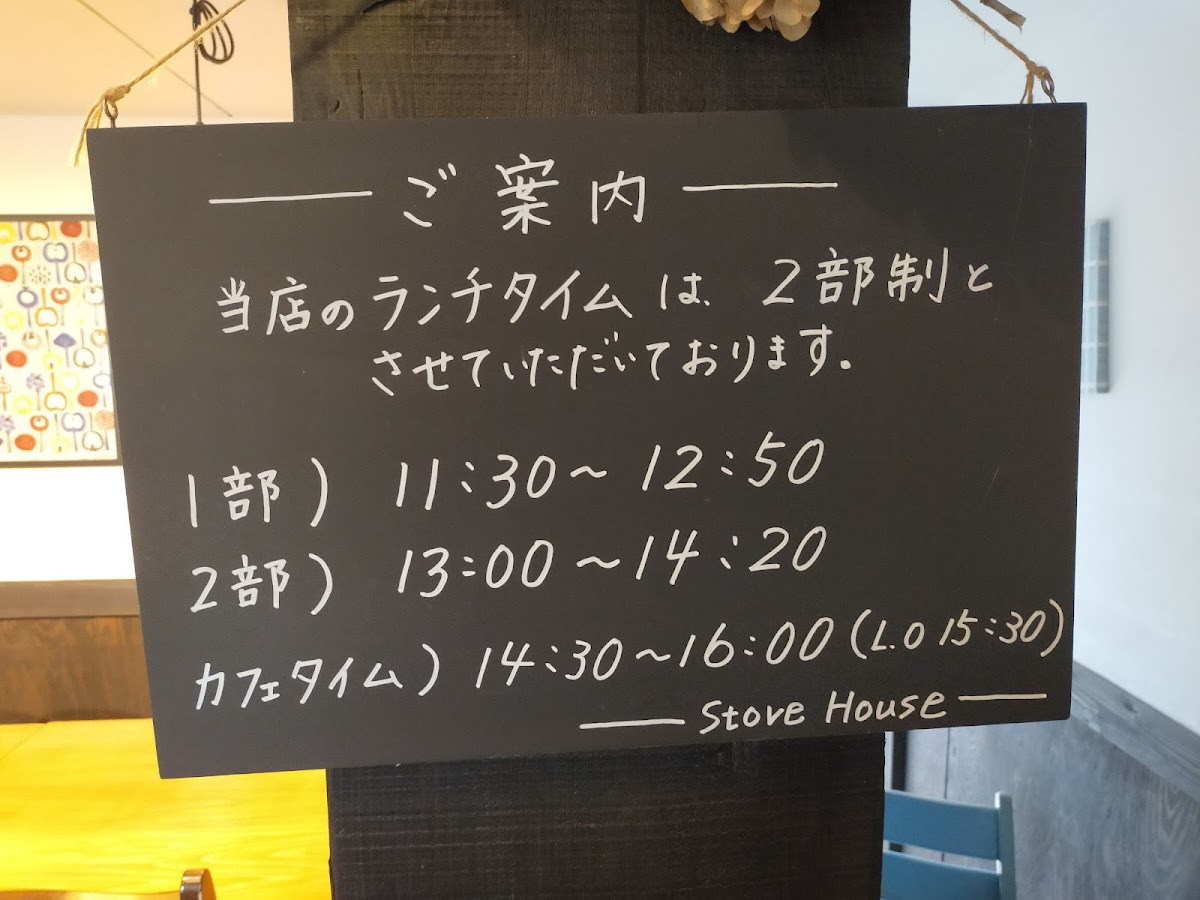 ご案内
当店のランチタイムは、2部制と
させていただいております。
1部) 11:30~12:50
2部) 13:00~14:20
カフェタイム) 14:30~16:00(L.O 15:30)
Stove House